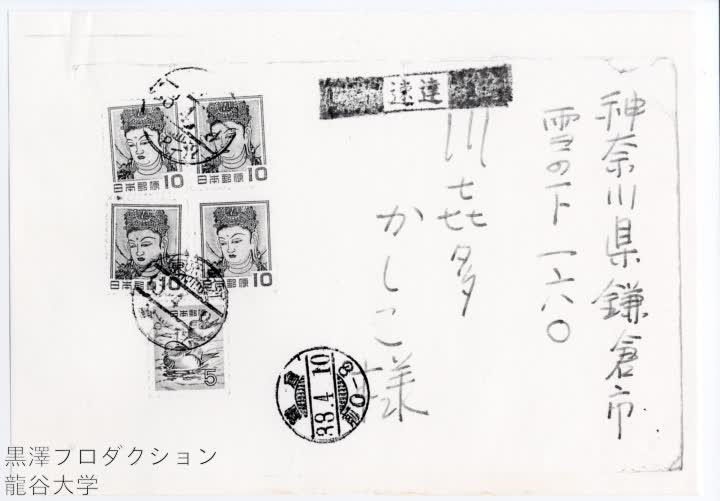 神奈川県鎌倉市
雪の下一六八〇
川喜多
かしこ様
速達
日本郵便 10
日本郵便 10
日本郵便 10
日本郵便 10
日本郵便
5
33.4.10
前0-8
黒澤プロダクション
龍谷大学